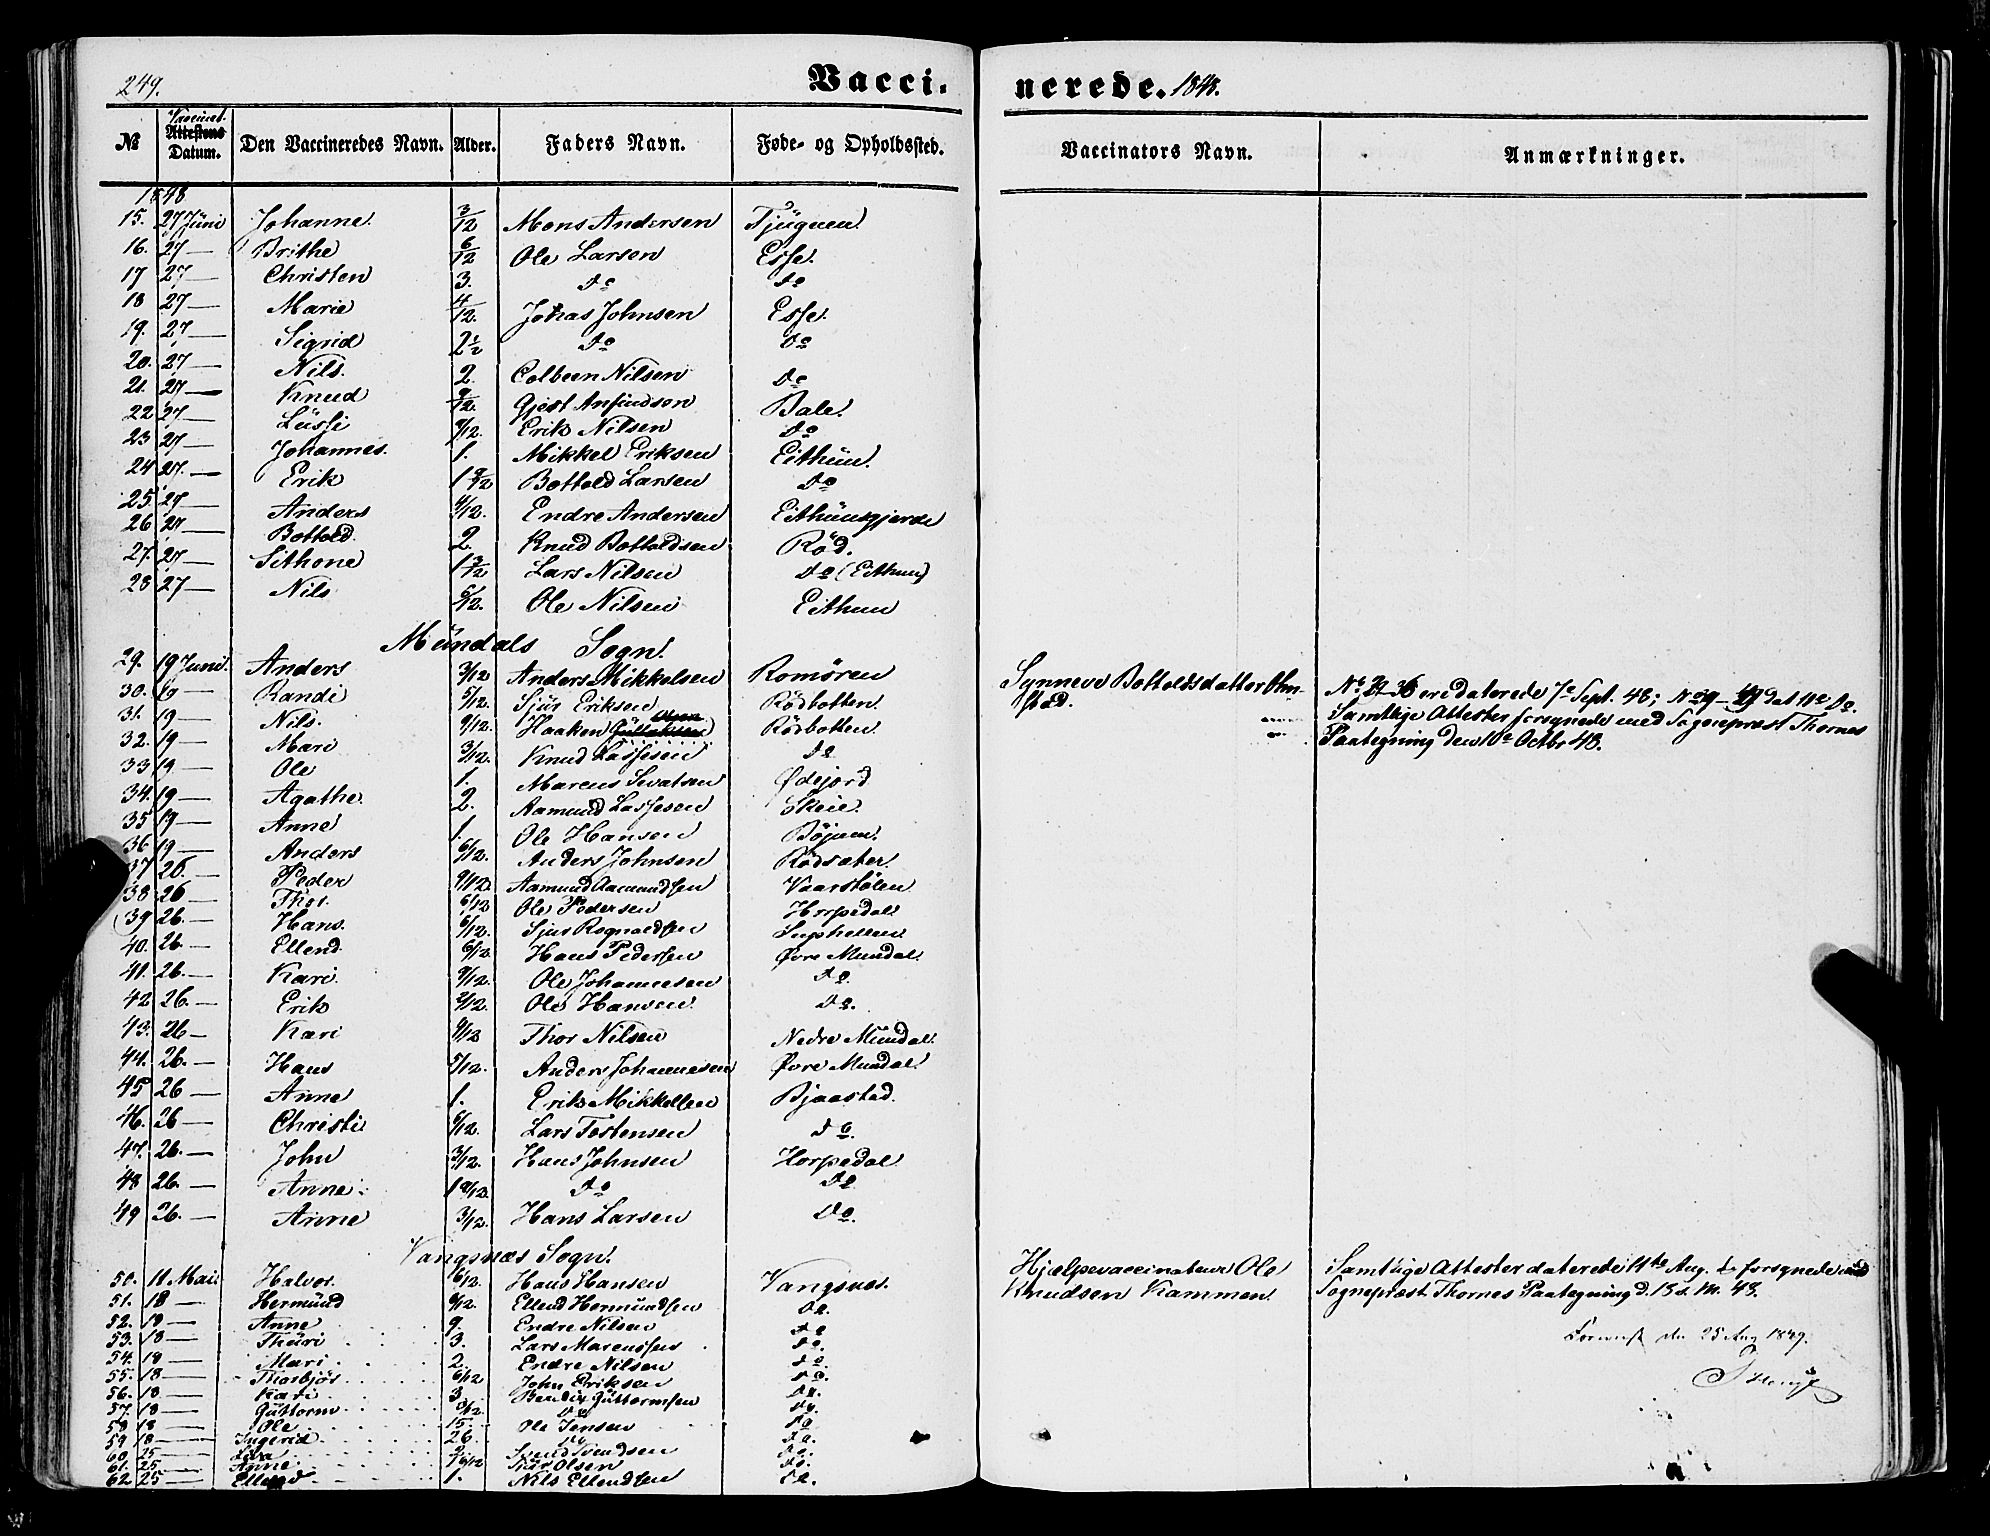 249.
Vacci-
nerede. 1848.
№ Vaccinat. Attestens Datum. Den Vaccineredes Navn. Alder. Faders Navn. Føde- og Opholdssted. Vaccinators Navn. Anmærkninger.
1848
15. 27 Juni Johanne. 3/12 Mons Andersen Tjugum
16. 27 — Brithe 6/12 Ole Larsen Esse.
17 27 — Christen 3. Do Do
18 27 — Marie 4/12. Johas Johnsen Esse.
19. 27 — Sigrid 2½ Do Do
20. 27 — Nils. 2. Colbeen Nilsen Do
21. 27 — Knud 9/12. Gjest Anfindsen Bale.
22 27 — Lussi 9/12. Erik Nilsen Do
23 27 — Johannes. 1. Mikkel Eriksen Eithun.
24 27. — Erik 1 9/12 Bottold Larsen Do
25. 27 — Anders 4/12. Endre Andersen Eithunsgjerde
26 27 — Bottold. 2. Knud Bottoldsen Röd.
27. 27 — Sithone 1 3/12 Lars Nilsen Do (Eithun)
28 27 — Nils 5/12. Ole Nilsen Eithun
Mundals Sogn.
29. 19 Juni. Anders 3/12 Anders Mikkelsen Romören Synneve Bottoldsdatter
30. 19 — Randi 5/12. Sjur Eriksen Rödbotten. No 32-36 ere daterede 7e Sept. 48; No 29 - 49 dat 11e Do.
31. 19 — Nils. 9/12. Haaken Olsen Rödbotten Samtlige Attester forsynede med Sognepræst Thornes
32. 19 — Mari 3/12. Knud Lassesen Do Paategning den 10e Octbr 48.
33 19 — Ole 1. Marcus Sevatsen Ødejord
34. 19 — Agathe. 2. Aamund Lassesen Skeie.
35 19 — Anne 1. Ole Hansen Böjum.
36 19 — Anders 6/12. Anders Johnsen Rödsæter.
37 26. — Peder 9/12 Aamund Aamundsen Vaarstölen
38 26 — Thor. 6/12 Ole Pedersen Horpedal
39 26. — Hans. 6/12. Sjur Rognaldsen
40. 26 — Ellend. 6/12. Hans Pedersen Øvre Mundal.
41. 26. — Kari. 9/12. Ole Johannesen Do
42 26. — Erik 2/12. Ole Hansen. Do.
43. 26 — Kari 9/12 Thor Nilsen Nedre Mundal.
44. 26. — Hans 5/12. Anders Johannesen Øvre Mundal.
45 26 — Anne 1. Erik Mikkelsen Bjaastad.
46. 26 — Christi 6/12. Lars Tostensen Do.
47. 26. — John 3/12. Hans Johnsen Horpedal
48 26. — Anne. 1 9/12. Do Do
49 26. — Anne 3/12. Hans Larsen Do.
Vangsnæs Sogn.
50. 11 Mai Halvor. 6/12. Hans Hansen Vangsnes. Hjælpevaccinateur Ole Samtlige Attester daterede 11te Aug. & forsynede med
51. 18 — Hermund 9/12. Ellend Hermundsen Do. Knudsen Kammen. Sognepræst Thornes Paategning d. 13 s. M. 48.
52. 18 — Anne 9. Endre Nilsen Do
53. 18 — Thuri 3. Lars Marcussen Do. den 25 Aug 1849.
54. 18 — Mari. 2. Endre Nilsen Do
55. 18 — Thorbjör 6/12 John Eriksen Do.
56. 18 — Kari 3 Bendix Guttormsen Do.
57. 18 — Guttorm 3/12. Do Do.
58 18 — Ole 15. Ole Jensen Do
59 18 — Ingerid. 26. Do Do.
60. 25 — Svend Svendsen Do.
61. 25 — Anne. Thor Olsen Do.
62 25 — Ellend 1. Nils Ellendsen Do.